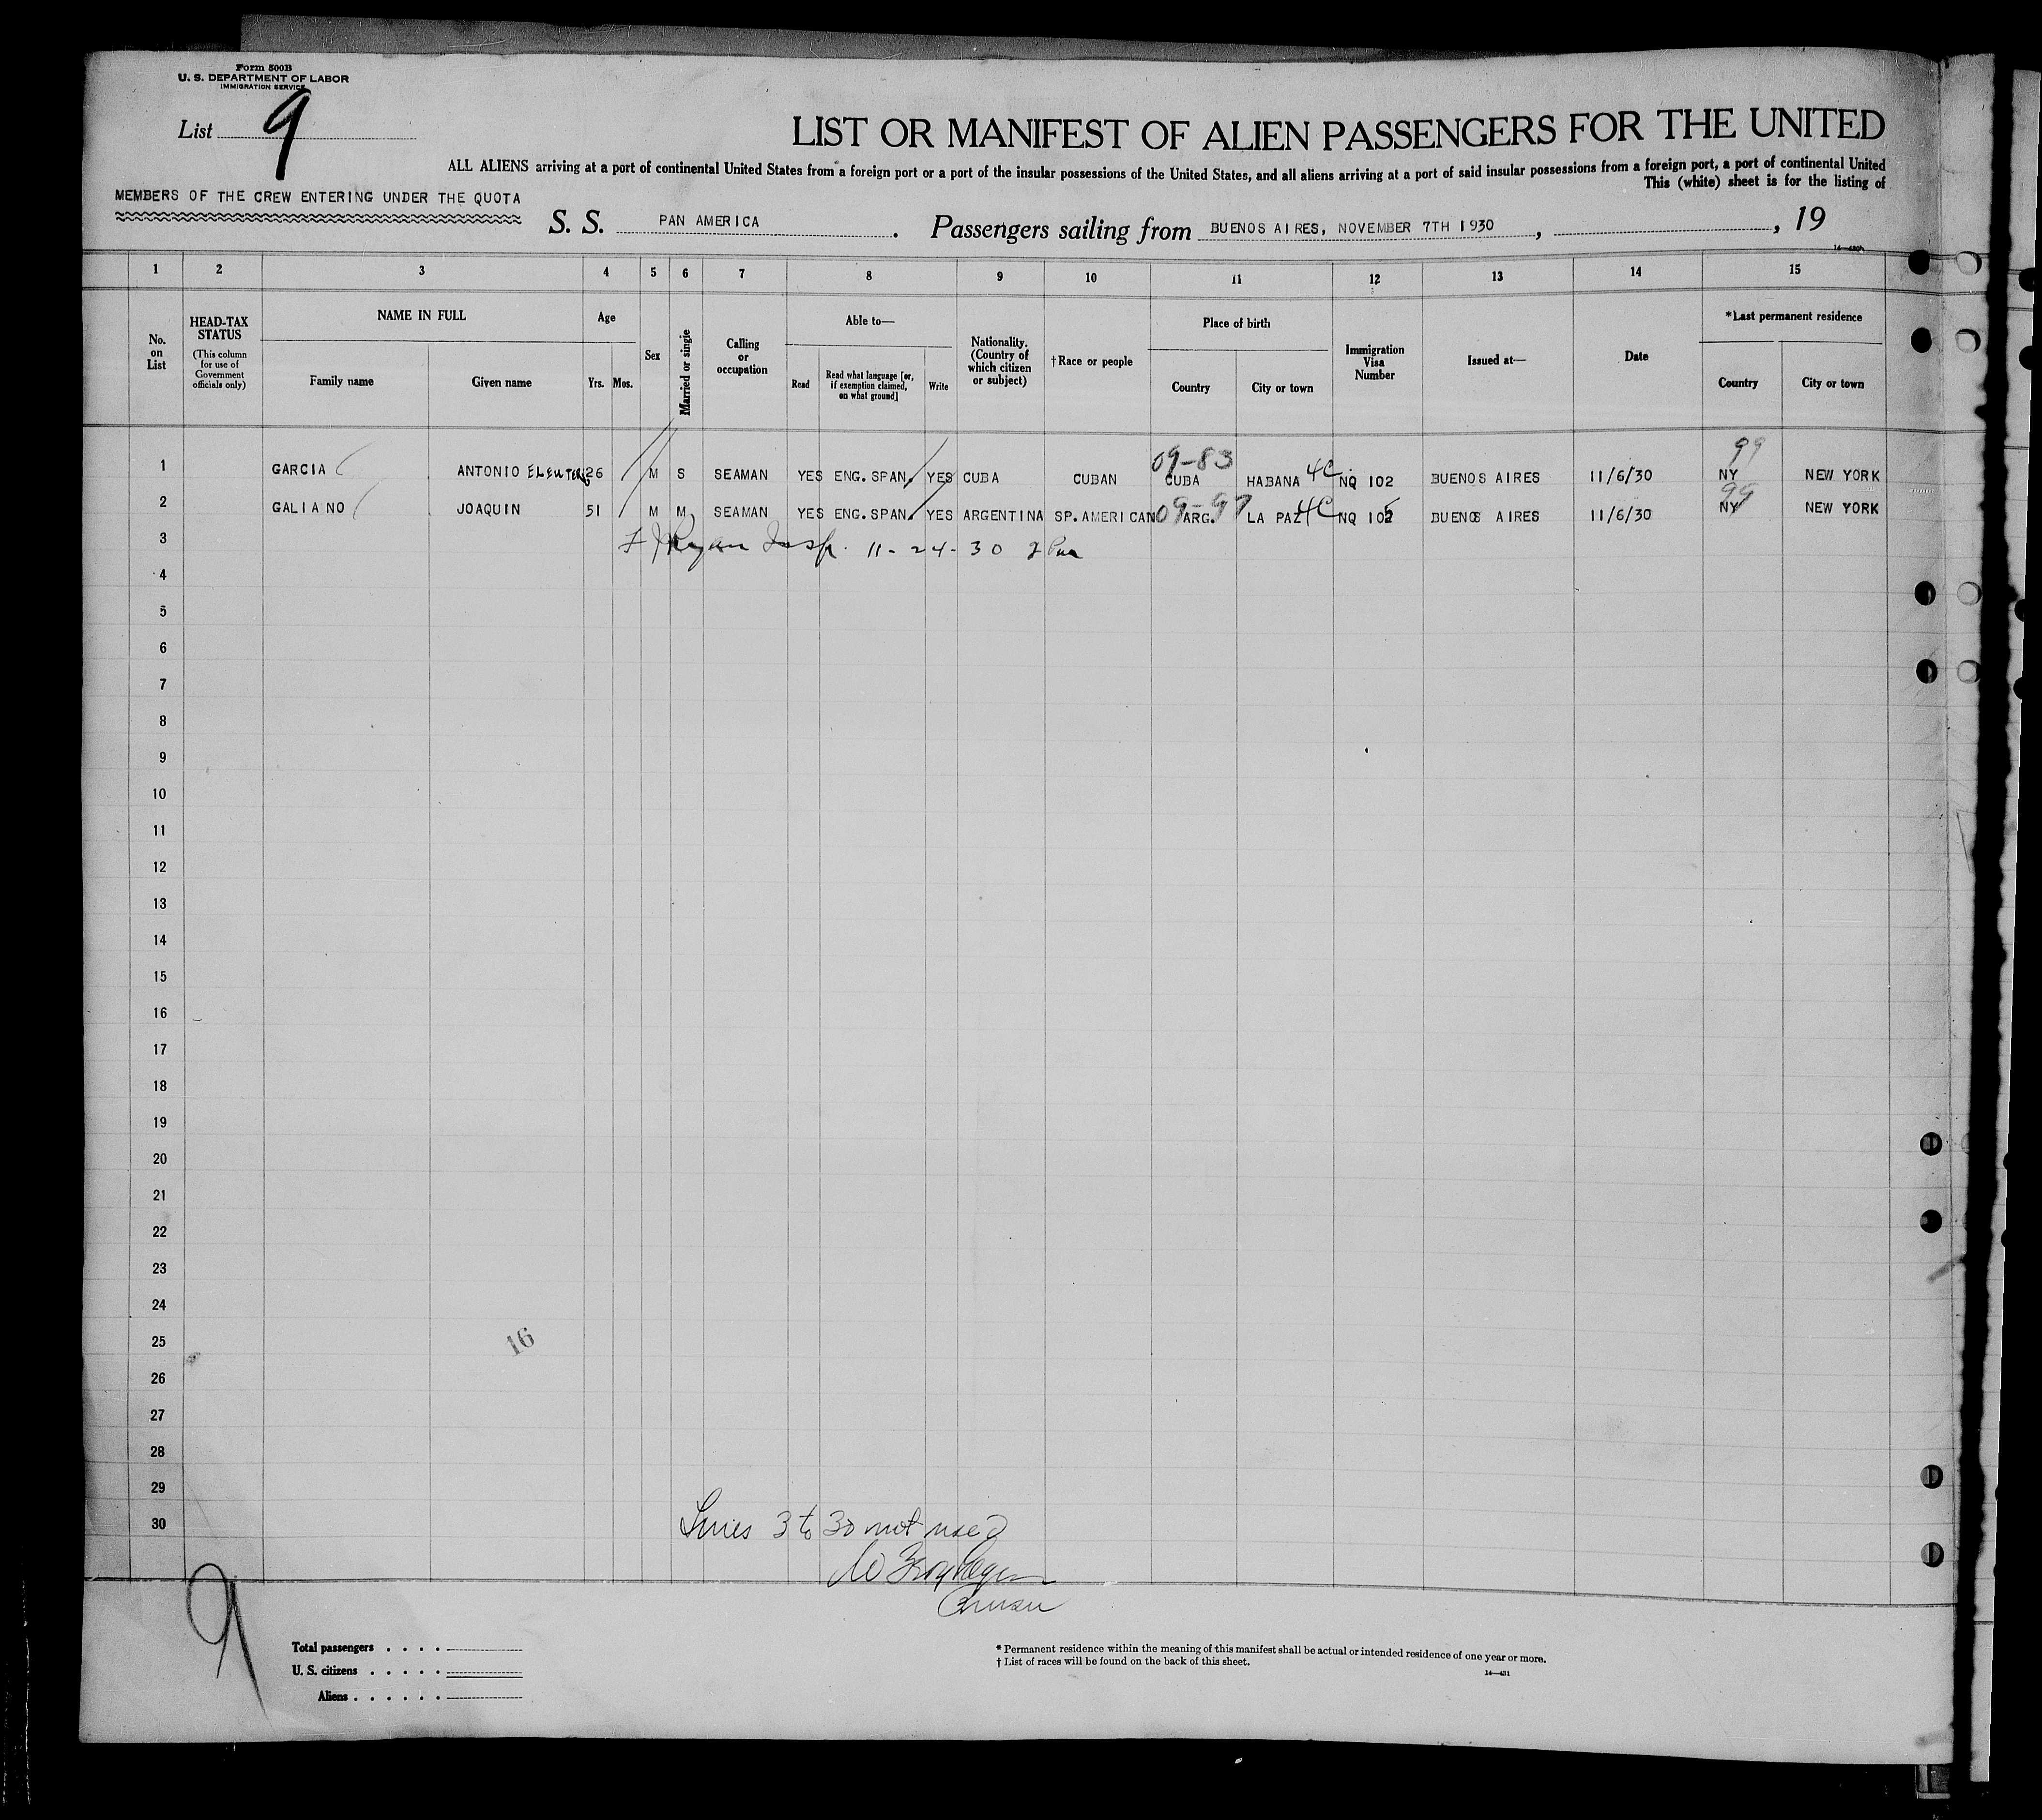 Form 500B
U. S. DEPARTMENT OF LABOR
IMMIGRATION SERVICE
List 9
LIST OR MANIFEST OF ALIEN PASSENGERS FOR THE UNITED
ALL ALIENS arriving at a port of continental United States from a foreign port or a port of the insular possessions of the United States, and all aliens arriving at a port of said insular possessions from a foreign port, a port of continental United
This (white) sheet is for the listing of
MEMBERS OF THE CREW ENTERING UNDER THE QUOTA
S. S. PAN AMERICA. Passengers sailing from BUENOS AIRES, NOVEMBER 7TH 1930, , 19
1 2 3 4 5 6 7 8 9 10 11 12 13 14 15
No. on List
HEAD-TAX STATUS (This column for use of Government officials only)
NAME IN FULL
Family name
Given name
Age
Yrs. Mos.
Sex
Married or single
Calling or occupation
Able to—
Read
Read what language [or, if exemption claimed, on what ground]
Write
Nationality. (Country of which citizen or subject)
†Race or people
Place of birth
Country
City or town
Immigration Visa Number
Issued at—
Date
*Last permanent residence
Country
City or town
09-83 99
1 GARCIA ANTONIO ELEUTERIO 26 M S SEAMAN YES ENG. SPAN. YES CUBA CUBAN CUBA HABANA 4C NQ 102 BUENOS AIRES 11/6/30 NY NEW YORK
09-97 99
2 GALIANO JOAQUIN 51 M M SEAMAN YES ENG. SPAN. YES ARGENTINA SP. AMERICAN ARG. LA PAZ 4C NQ 105 BUENOS AIRES 11/6/30 NY NEW YORK
3 F J Ryan Insp. 11-24-30
4
5
6
7
8
9
10
11
12
13
14
15
16
17
18
19
20
21
22
23
24
25
16
26
27
28
29
30
Lines 3 to 30 not used
9
Total passengers . . . .
U. S. citizens . . . . .
Aliens . . . . . .
* Permanent residence within the meaning of this manifest shall be actual or intended residence of one year or more.
† List of races will be found on the back of this sheet.
14—431